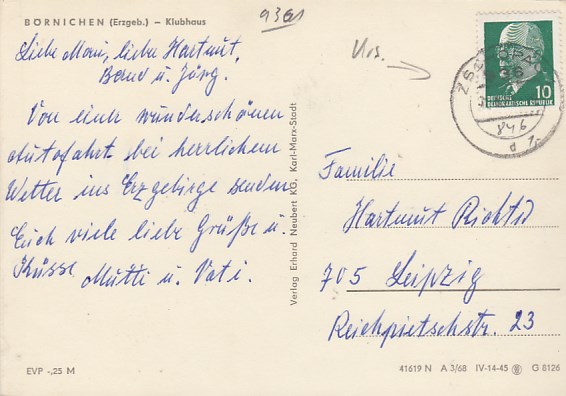 BÖRNICHEN (Erzgeb.) – Klubhaus
9361
Liebe Moni, liebe Hartmut,
Bernd u. Jörg.
Von einer wunderschönen
Autofahrt bei herrlichem
Wetter ins Erzgebirge senden
Euch viele liebe Grüße u.
Küsse Mutti u. Vati.
Verlag Erhard Neubert KG, Karl-Marx-Stadt
10
DEUTSCHE
DEMOKRATISCHE REPUBLIK
846
d 1,-
Familie
Hartmut Richter
705 Leipzig
Reichpietschstr. 23
EVP -,25 M
41619 N A 3/68 IV-14-45 G 8126